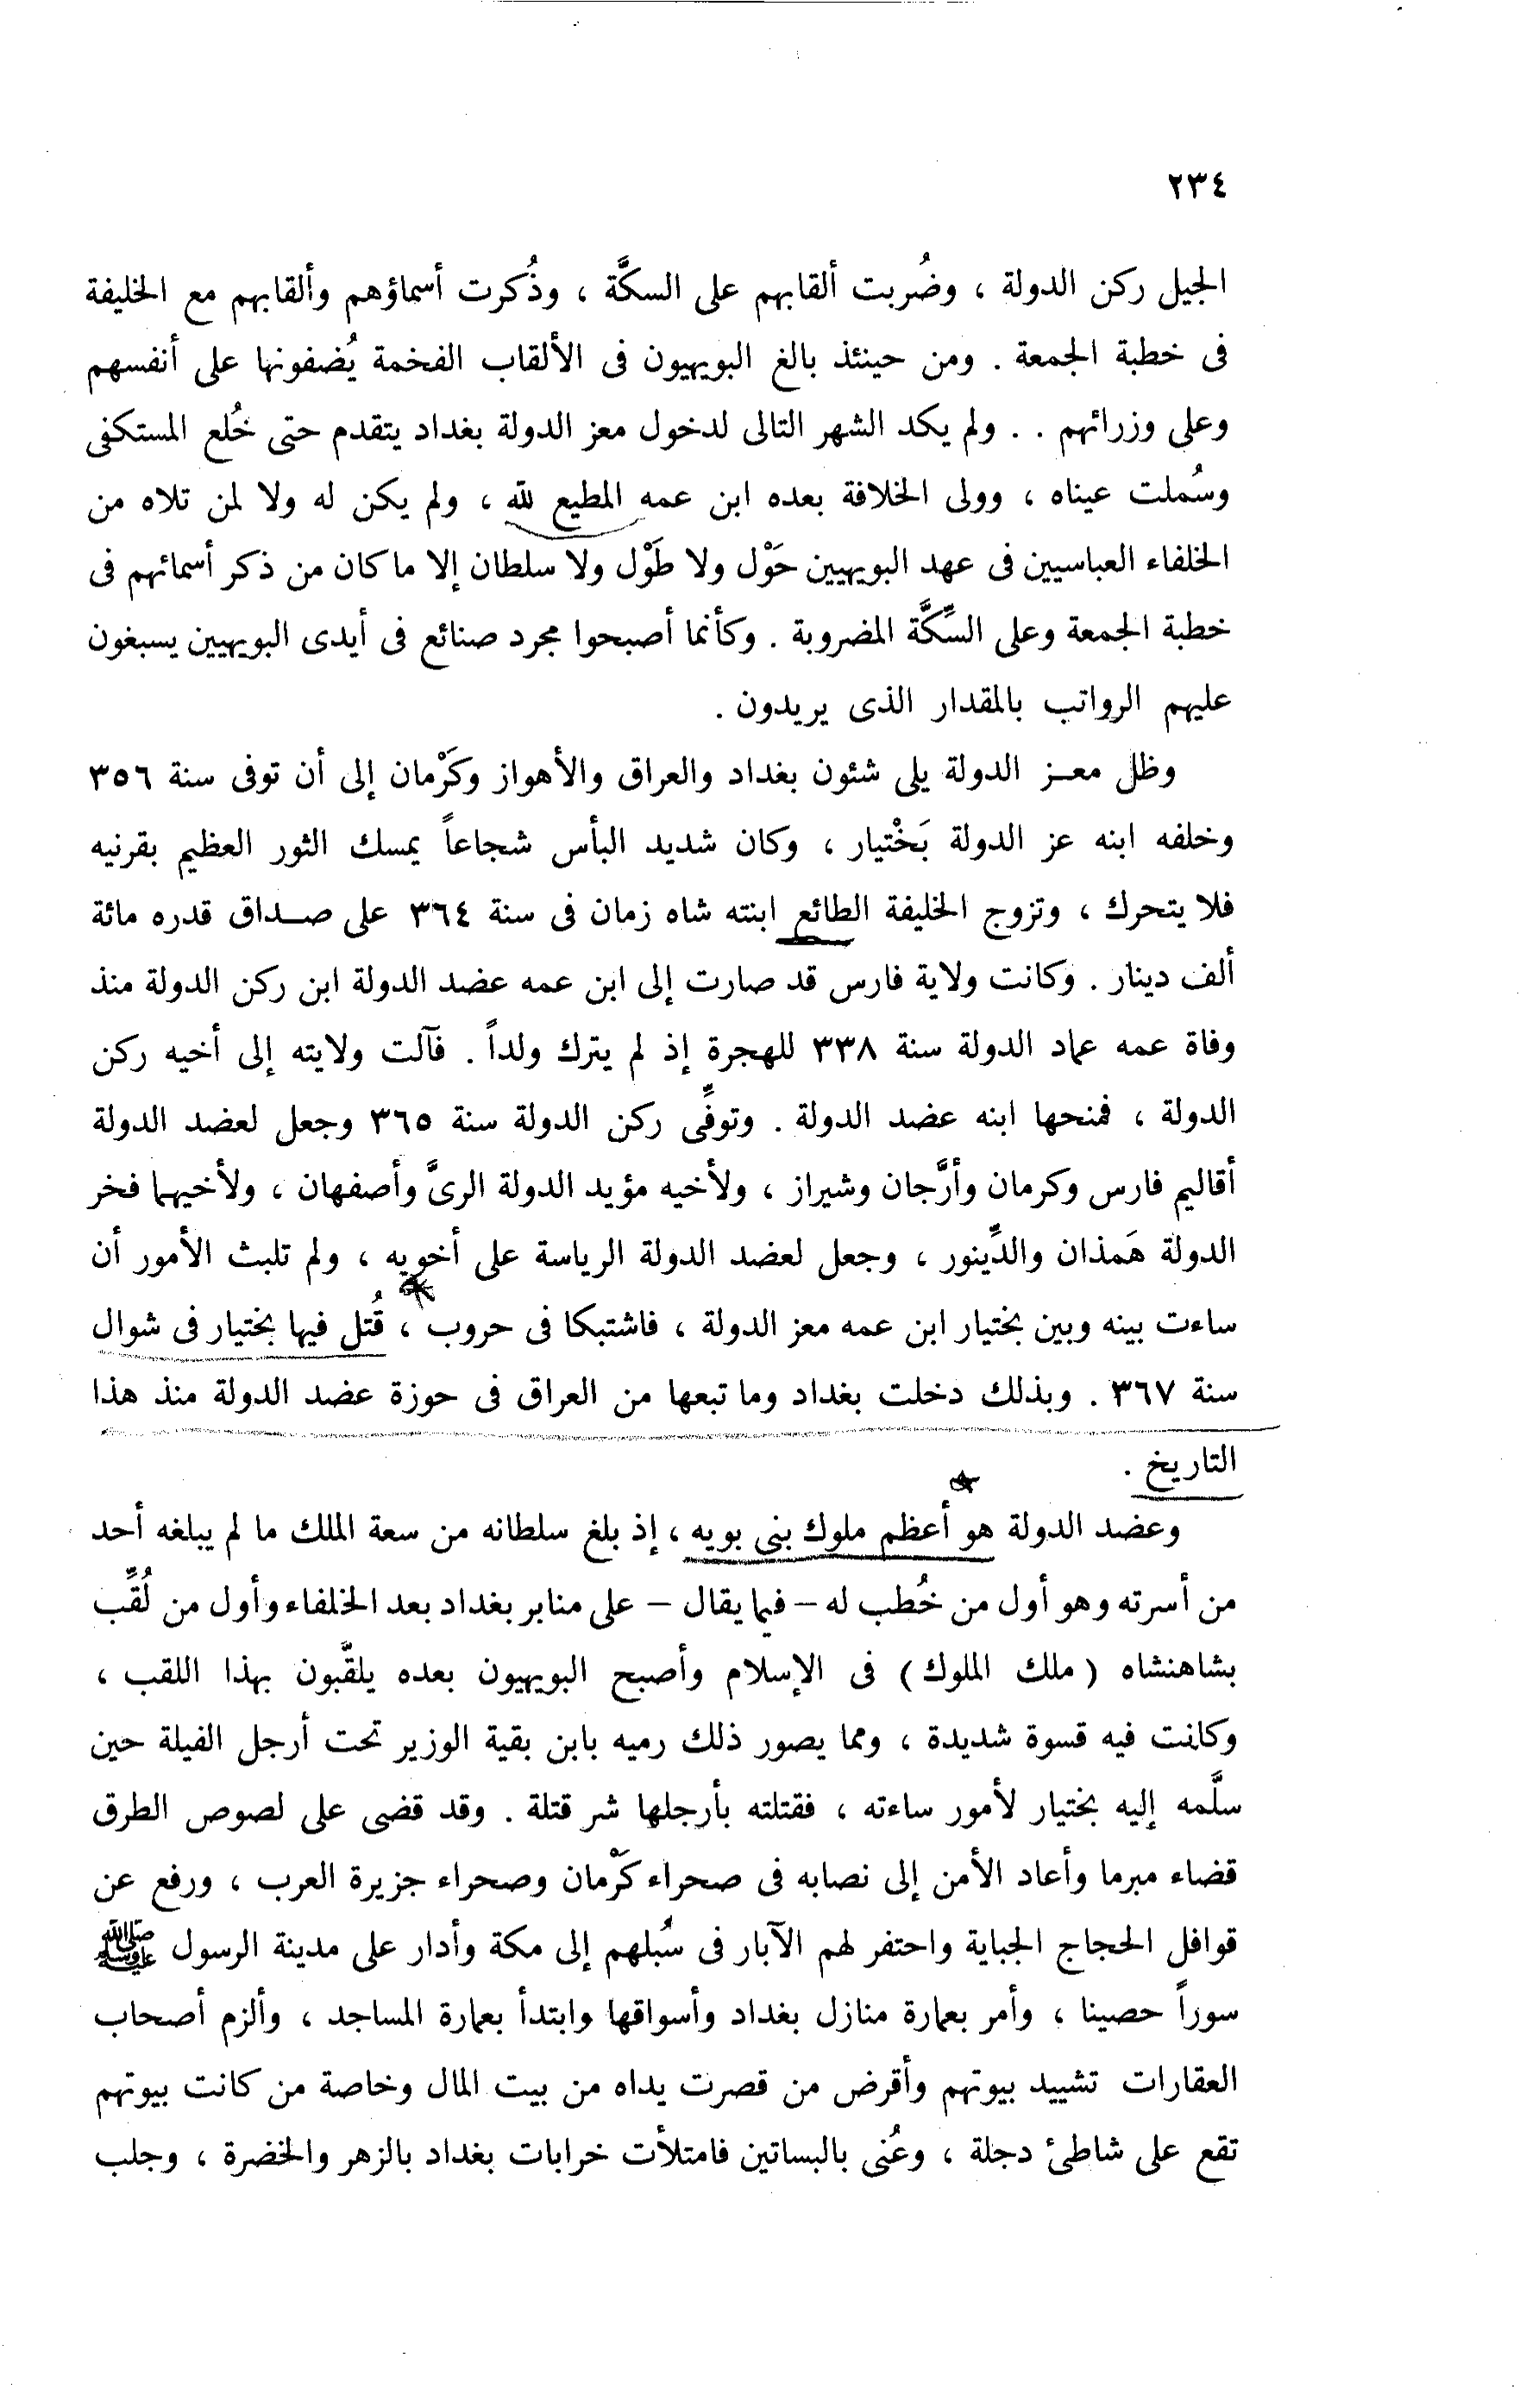 ٢٣٤
الجيل ركن الدولة ، وضُربت ألقابهم على السكَّة ، وذُكرت أسماؤهم وألقابهم مع الخليفة
فى خطبة الجمعة . ومن حينئذ بالغ البويهيون فى الألقاب الفخمة يُضفونها على أنفسهم
وعلى وزرائهم . . ولم يكد الشهر التالى لدخول معز الدولة بغداد يتقدم حتى خُلع المستكفى
وسُملت عيناه ، وولى الخلافة بعده ابن عمه المطيع لله ، ولم يكن له ولا لمن تلاه من
الخلفاء العباسيين فى عهد البويهيين حَوْل ولا طَوْل ولا سلطان إلا ما كان من ذكر أسمائهم فى
خطبة الجمعة وعلى السِّكَّة المضروبة . وكأنما أصبحوا مجرد صنائع فى أيدى البويهيين يسبغون
عليهم الرواتب بالمقدار الذى يريدون .
وظل معـز الدولة يلى شئون بغداد والعراق والأهواز وكَرْمان إلى أن توفى سنة ٣٥٦
وخلفه ابنه عز الدولة بَخْتيار ، وكان شديد البأس شجاعاً يمسك الثور العظيم بقرنيه
فلا يتحرك ، وتزوج الخليفة الطائع ابنته شاه زمان فى سنة ٣٦٤ على صـداق قدره مائة
ألف دينار . وكانت ولاية فارس قد صارت إلى ابن عمه عضد الدولة ابن ركن الدولة منذ
وفاة عمه عماد الدولة سنة ٣٣٨ للهجرة إذ لم يترك ولداً . فآلت ولايته إلى أخيه ركن
الدولة ، فمنحها ابنه عضد الدولة . وتوفِّى ركن الدولة سنة ٣٦٥ وجعل لعضد الدولة
أقاليم فارس وكرمان وأرَّجان وشيراز ، ولأخيه مؤيد الدولة الرىَّ وأصفهان ، ولأخيهما فخر
الدولة هَمذان والدِّينور ، وجعل لعضد الدولة الرياسة على أخويه ، ولم تلبث الأمور أن
ساءت بينه وبين بختيار ابن عمه معز الدولة ، فاشتبكا فى حروب ، قُتل فيها بختيار فى شوال
سنة ٣٦٧ . وبذلك دخلت بغداد وما تبعها من العراق فى حوزة عضد الدولة منذ هذا
التاريخ .
وعضد الدولة هو أعظم ملوك بنى بويه ، إذ بلغ سلطانه من سعة الملك ما لم يبلغه أحد
من أسرته وهو أول من خُطب له – فيما يقال – على منابر بغداد بعد الخلفاء وأول من لُقِّب
بشاهنشاه ( ملك الملوك ) فى الإسلام وأصبح البويهيون بعده يلقَّبون بهذا اللقب ،
وكانت فيه قسوة شديدة ، ومما يصور ذلك رميه بابن بقية الوزير تحت أرجل الفيلة حين
سلَّمه إليه بختيار لأمور ساءته ، فقتلته بأرجلها شر قتلة . وقد قضى على لصوص الطرق
قضاء مبرما وأعاد الأمن إلى نصابه فى صحراء كَرْمان وصحراء جزيرة العرب ، ورفع عن
قوافل الحجاج الجباية واحتفر لهم الآبار فى سُبلهم إلى مكة وأدار على مدينة الرسول ﷺ
سوراً حصينا ، وأمر بعمارة منازل بغداد وأسواقها وابتدأ بعمارة المساجد ، وألزم أصحاب
العقارات تشييد بيوتهم وأقرض من قصرت يداه من بيت المال وخاصة من كانت بيوتهم
تقع على شاطئ دجلة ، وعُنى بالبساتين فامتلأت خرابات بغداد بالزهر والخضرة ، وجلب